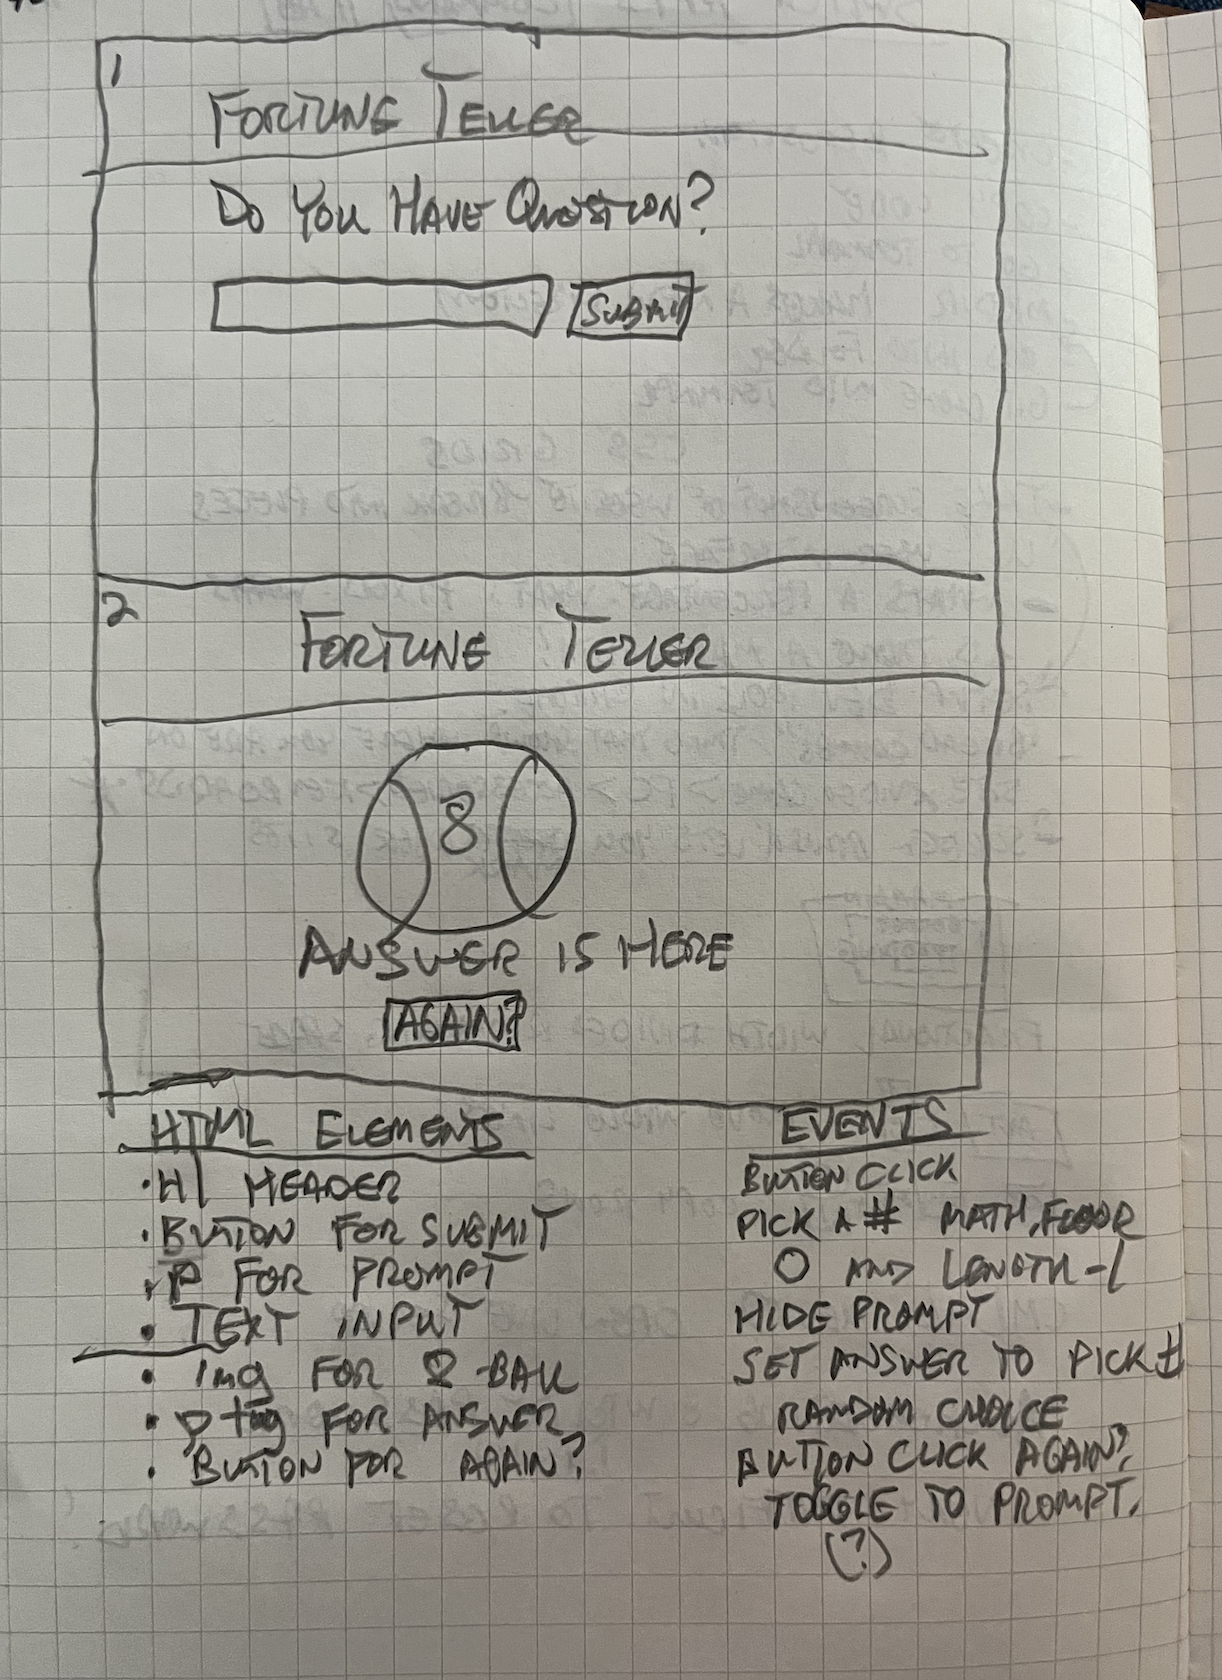 1
FORTUNE TELLER
DO YOU HAVE QUESTION?
SUBMIT
2
FORTUNE TELLER
8
ANSWER IS HERE
AGAIN?
HTML ELEMENTS
• H1 HEADER
• BUTTON FOR SUBMIT
• P FOR PROMPT
• TEXT INPUT
• Img FOR 8 BALL
• P tag FOR ANSWER
• BUTTON FOR AGAIN?
EVENTS
BUTTON CLICK
PICK A # MATH.FLOOR
0 AND LENGTH -1
HIDE PROMPT
SET ANSWER TO PICK #
RANDOM CHOICE
BUTTON CLICK AGAIN?
TOGGLE TO PROMPT.
(?)